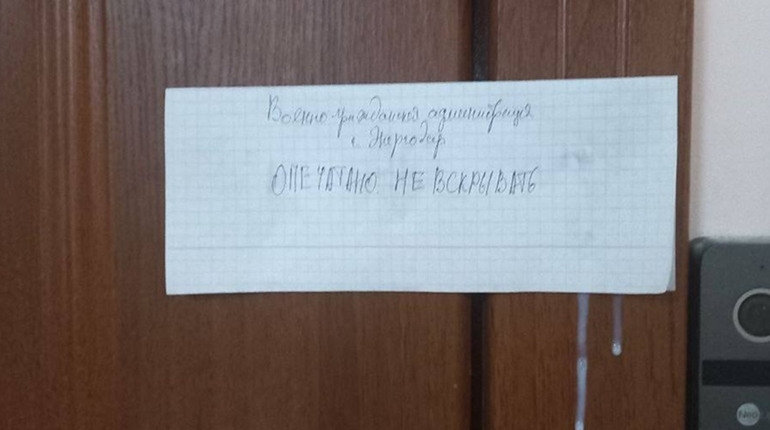 Военно-гражданская администрация
г. Энергодар
ОПЕЧАТАНО НЕ ВСКРЫВАТЬ
Neo